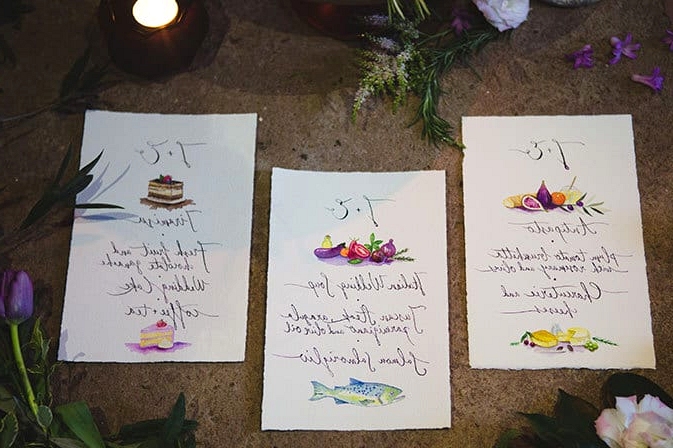 T + E
Antipasto
plum tomato bruschetta
with rosemary and olives
Charcuterie and
cheeses
T + E
Italian Wedding Soup
Tuscan Steak, arugula
parmigiano and olive oil
Salmon Salmoriglio
T + E
Tiramisu
Fresh fruit and
chocolate ganache
Wedding Cake
coffee + tea